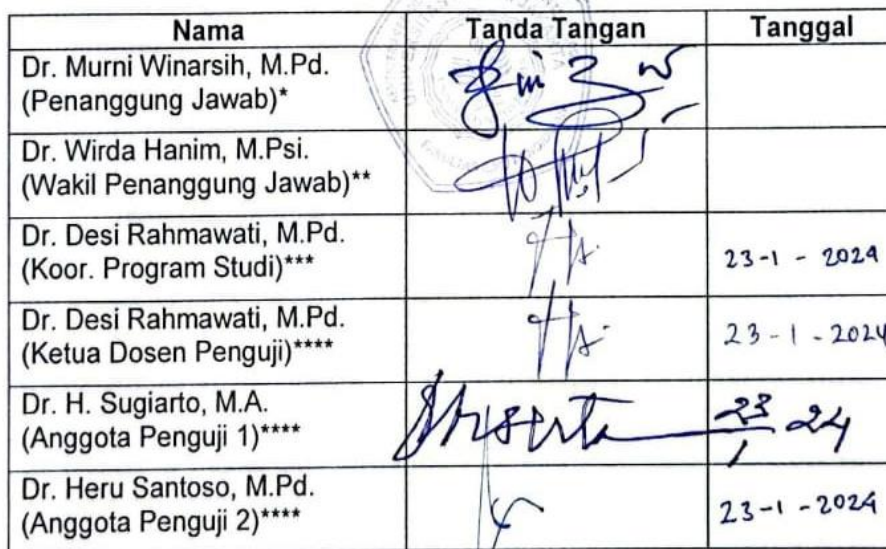 Nama Tanda Tangan Tanggal
Dr. Murni Winarsih, M.Pd.
(Penanggung Jawab)*
Dr. Wirda Hanim, M.Psi.
(Wakil Penanggung Jawab)**
Dr. Desi Rahmawati, M.Pd.
(Koor. Program Studi)***
23-1 - 2024
Dr. Desi Rahmawati, M.Pd.
(Ketua Dosen Penguji)****
23-1-2024
Dr. H. Sugiarto, M.A.
(Anggota Penguji 1)****
23/1 24
Dr. Heru Santoso, M.Pd.
(Anggota Penguji 2)****
23-1-2024